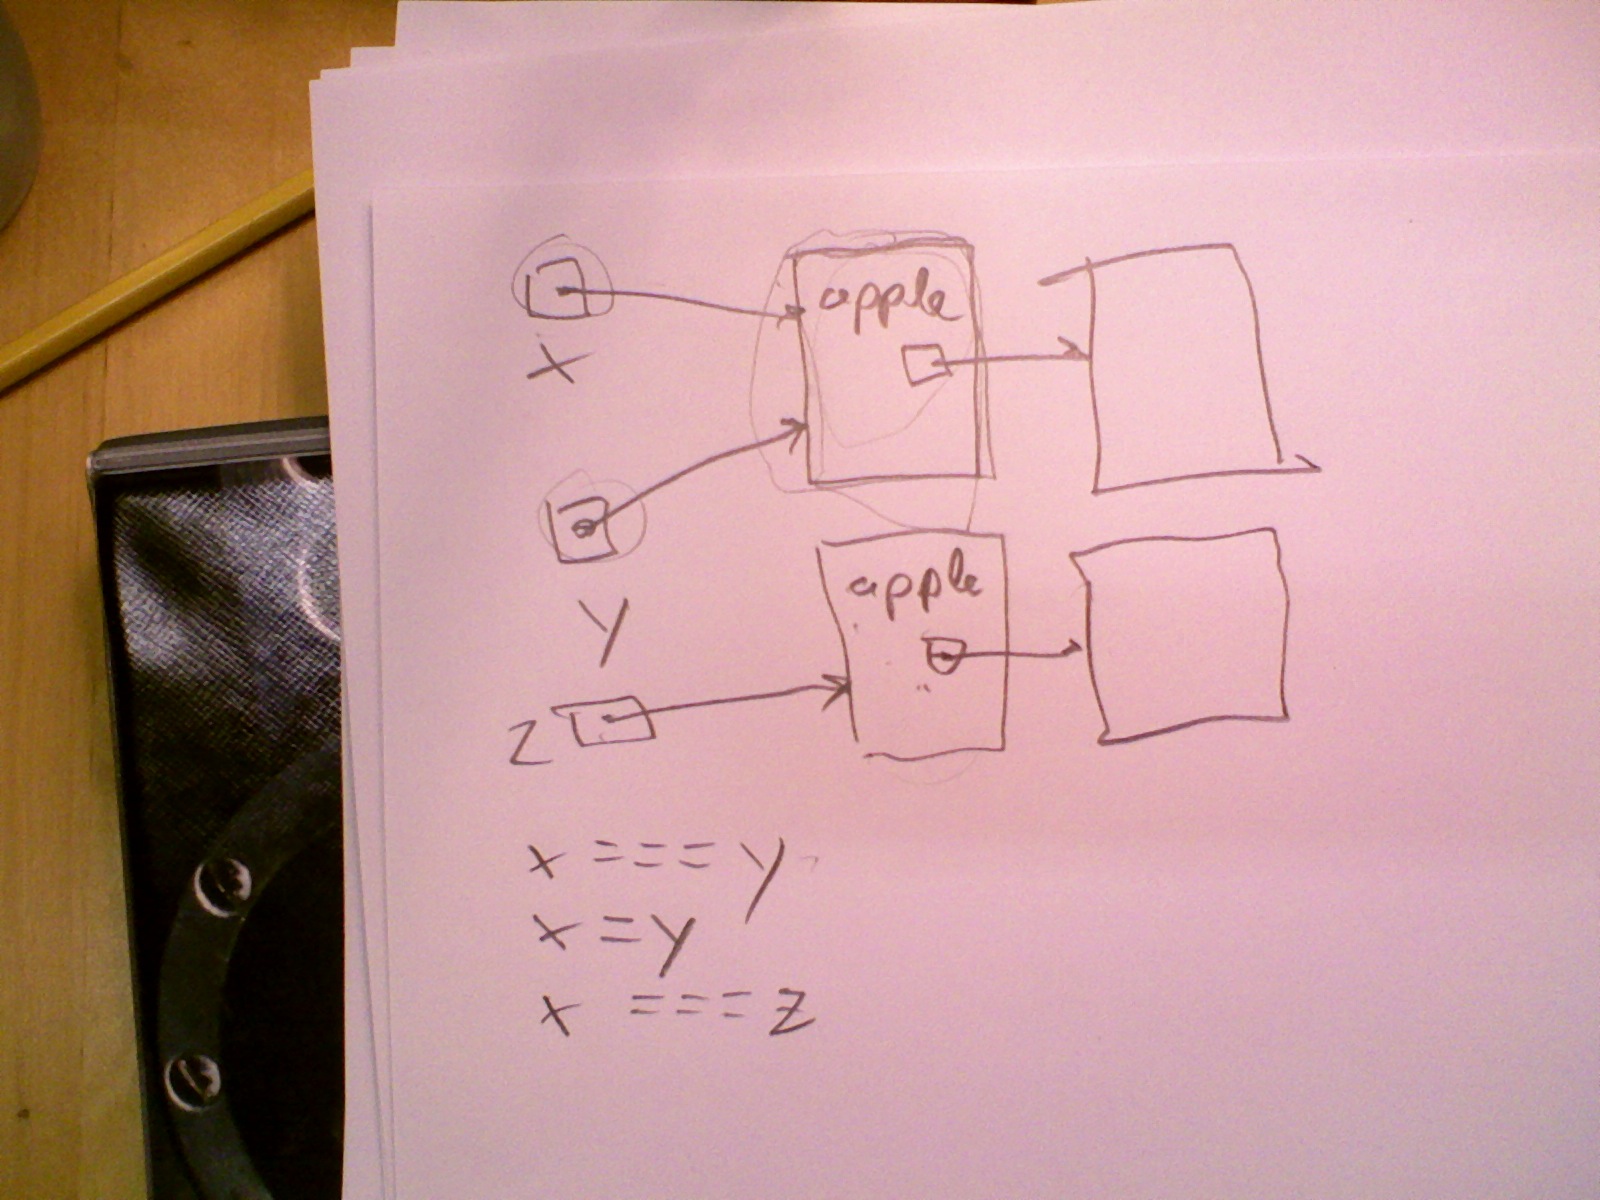 x
apple
y
apple
z
x === y
x = y
x === z